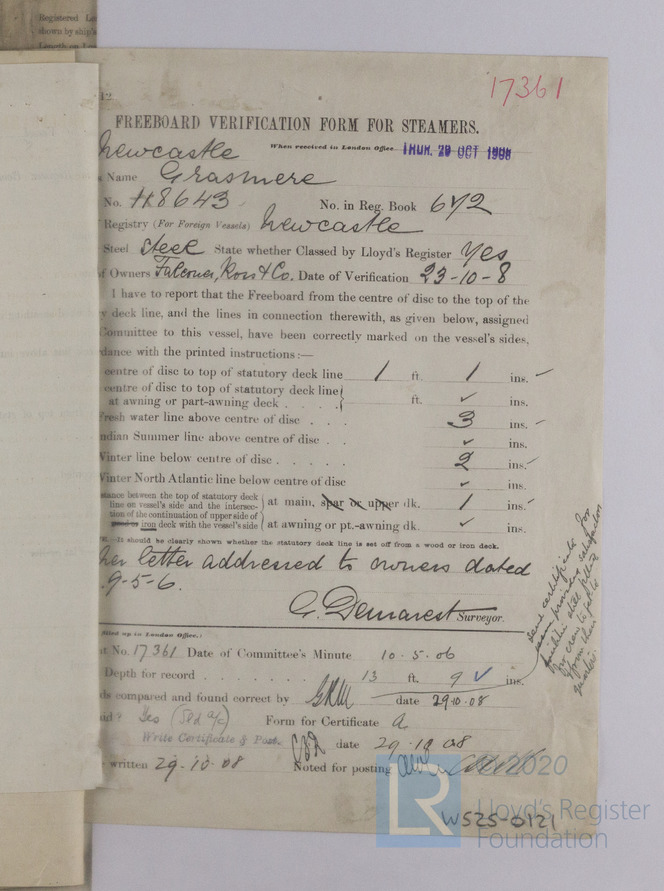 Registered
shown by ship's
Length on
12
17361
FREEBOARD VERIFICATION FORM FOR STEAMERS.
Newcastle
When received in London Office THUR. 29 OCT 1908
Name Grasmere
No. 118643 No. in Reg. Book 672
Registry (For Foreign Vessels) Newcastle
Steel Steel State whether Classed by Lloyd's Register Yes
Owners Falconer, Ross & Co. Date of Verification 23-10-8
I have to report that the Freeboard from the centre of disc to the top of the
deck line, and the lines in connection therewith, as given below, assigned
Committee to this vessel, have been correctly marked on the vessel's sides,
dance with the printed instructions:—
centre of disc to top of statutory deck line 1 ft. 1 ins.
centre of disc to top of statutory deck line
at awning or part-awning deck . . . . ft. ✓ ins.
fresh water line above centre of disc . . . 3 ins.
ndian Summer line above centre of disc . . ✓ ins.
Winter line below centre of disc . . . . 2 ins.
Winter North Atlantic line below centre of disc ✓ ins.
stance between the top of statutory deck
line on vessel's side and the intersec-
tion of the continuation of upper side of
iron deck with the vessel's side
at main, spar or upper dk. 1 ins.
at awning or pt.-awning dk. ✓ ins.
It should be clearly shown whether the statutory deck line is set off from a wood or iron deck.
letter addressed to owners dated
9-5-6.
G. Demarest Surveyor.
filled up in London Office.:
t No. 17361 Date of Committee's Minute 10-5-06
Depth for record . . . . . . . 13 ft. 9 ✓ ins.
ds compared and found correct by date 29.10.08
aid? Yes Form for Certificate A
Write Certificate & Post. date 29-10-08
written 29-10-08 Noted for posting
send certificate
© 2020
Lloyd's Register
Foundation
LR
W525-0121